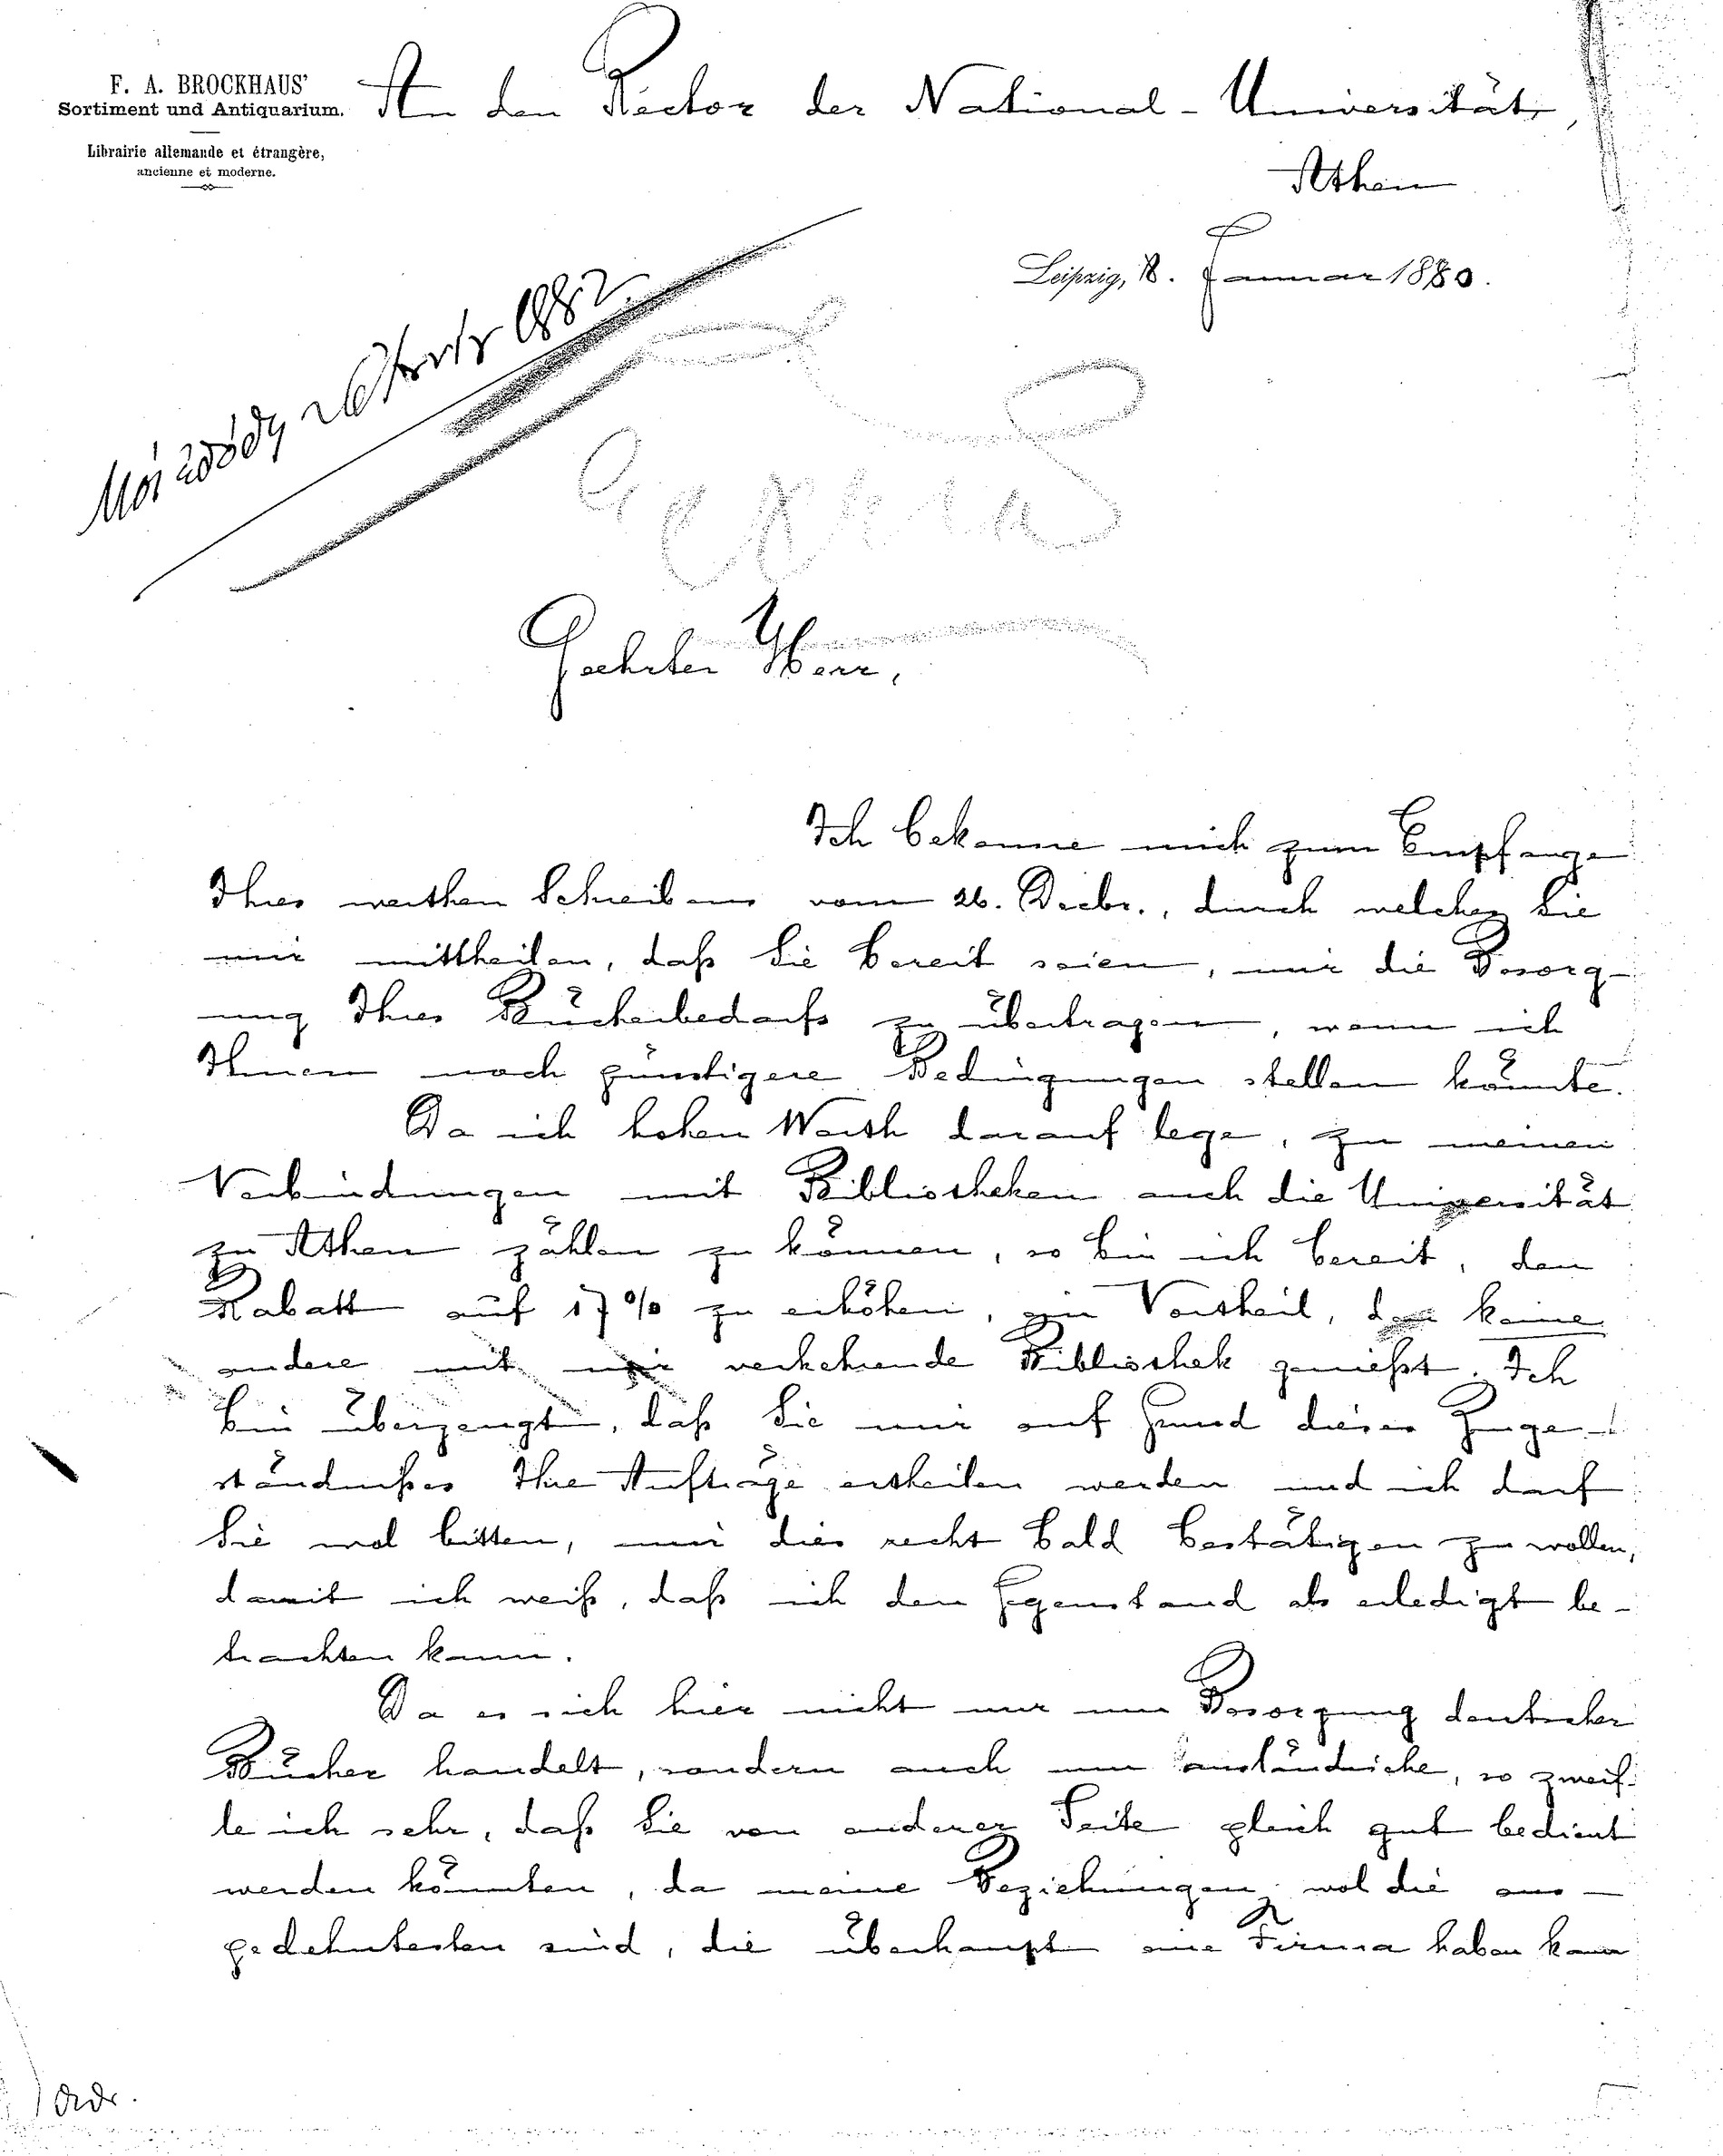 F. A. BROCKHAUS'
Sortiment und Antiquarium.
Librairie allemande et étrangère,
ancienne et moderne.
An den Rector der National-Universität,
Athen
Leipzig, 8. Januar 1880.
1882
Geehrter Herr,
Ich bekenne mich zum Empfange
Ihres werthen Schreibens vom 26. Decbr., durch welches Sie
mir mittheilen, daß Sie bereit seien, mir die Besorg-
ung Ihres Bücherbedarfs zu übertragen, wenn ich
Ihnen noch günstigere Bedingungen stellen könnte.
Da ich hohen Werth darauf lege, zu meinen
Verbindungen mit Bibliotheken auch die Universität
zu Athen zählen zu können, so bin ich bereit, den
Rabatt auf 17% zu erhöhen, ein Vortheil, den keine
andere mit mir verkehrende Bibliothek genießt. Ich
bin überzeugt, daß Sie mir auf Grund dieses Zuge-
ständnißes Ihre Aufträge ertheilen werden und ich darf
Sie wol bitten, mir dies recht bald bestätigen zu wollen,
damit ich weiß, daß ich den Gegenstand als erledigt be-
trachten kann.
Da es sich hier nicht nur um Besorgung deutscher
Bücher handelt, sondern auch um ausländische, so zweif-
le ich sehr, daß Sie von anderer Seite gleich gut bedient
werden könnten, da meine Beziehungen wol die aus-
gedehntesten sind, die überhaupt eine Firma haben kann